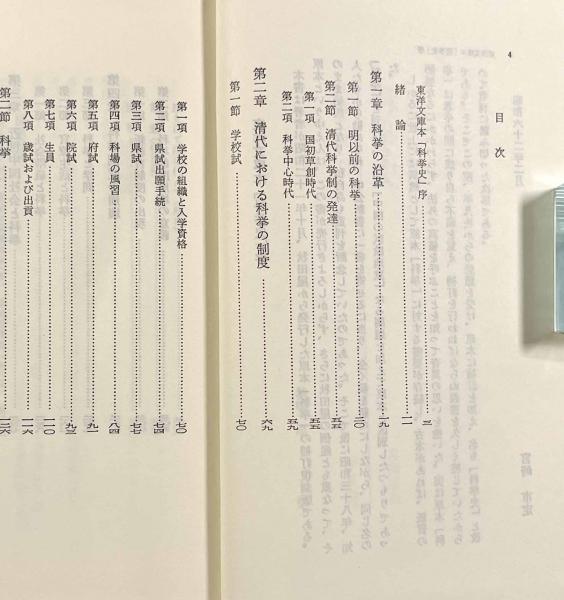 4
目次
東洋文庫本「科挙史」序……三
緒論……一一
第一章 科挙の沿革……一九
第一節 明以前の科挙……二〇
第二節 清代科挙制の発達……五五
第一項 国初草創時代……五五
第二項 科挙中心時代……五九
第二章 清代における科挙の制度……六九
第一節 学校試……七〇
第一項 学校の組織と入学資格……七〇
第二項 県試出願手続……七四
第三項 県試……七七
第四項 科場の風習……八四
第五項 府試……九一
第六項 院試……九三
第七項 生員……一一〇
第八項 歳試および出貢……一一六
第二節 科挙……一二六